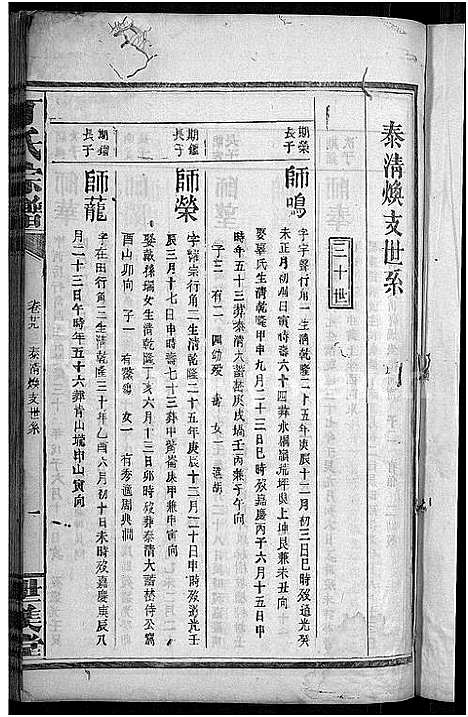 泰清煥支世系
三十世
期榮長子
師鳴
字聲行角一生清乾隆二十五年庚辰十二月初三日巳時歿道光癸
未正月初捌日寅時壽六十四葬水楓嶺荒坪與上坤艮兼未丑向
娶辜氏生清乾隆甲申九月二十三日巳時歿嘉慶丙子六月十五日申
時年五十三葬泰清大嶅庚戌塆壬丙兼子午向
子三 有二 四幼殀 女一 適胡
期鑑長子
師榮
宗行角二生清乾隆二十五年庚辰十二月二十日申時歿道光壬
辰三月十七日申時壽七十三葬甲庚甲兼申寅向
娶戴孫瑞女生清乾隆丁亥六月十三日卯時歿葬泰清大嶅
酉山卯向 子一 有 女一 有秀適周典
期
長子
師龍
字在田行角三生清乾隆三十年乙酉六月初十日未時歿嘉慶庚辰八
月二十三日午時年五十六葬青山塆申山寅向
氏宗譜
卷廿九 泰清煥支世系
一